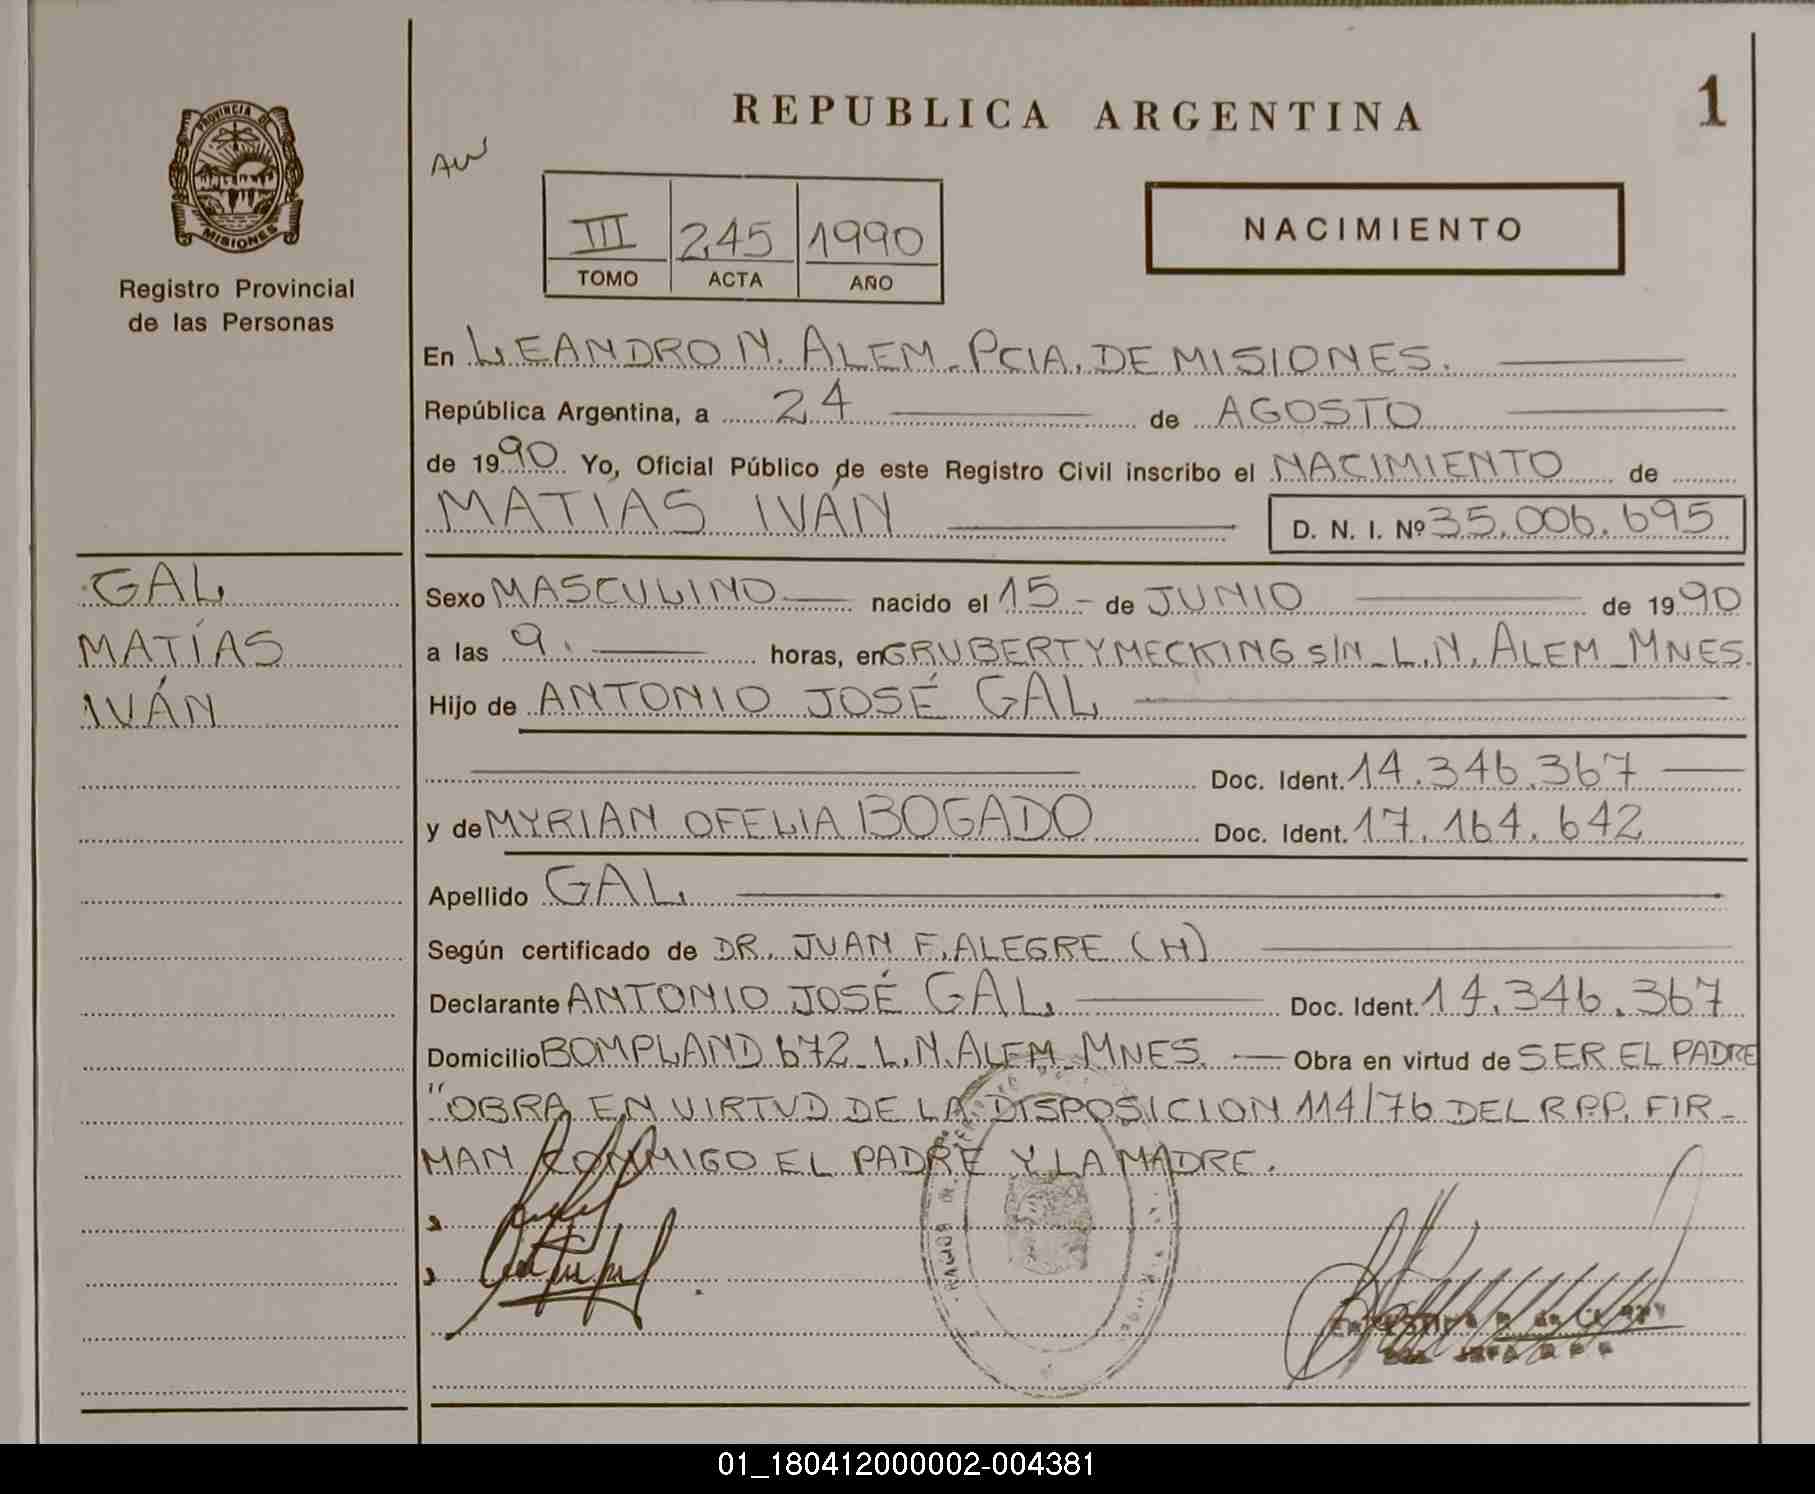 PROVINCIA DE
MISIONES
Registro Provincial
de las Personas
REPUBLICA ARGENTINA
1
III 245 1990
TOMO ACTA AÑO
NACIMIENTO
En LEANDRO N. ALEM - PCIA. DE MISIONES.
República Argentina, a 24 de AGOSTO
de 1990 Yo, Oficial Público de este Registro Civil inscribo el NACIMIENTO de
MATIAS IVÁN D. N. I. Nº 35.006.695
GAL
MATÍAS
IVÁN
Sexo MASCULINO nacido el 15 - de JUNIO de 1990
a las 9. horas, en GRUBERT Y MECKING S/N - L.N. ALEM - MNES.
Hijo de ANTONIO JOSÉ GAL
Doc. Ident. 14.346.367
y de MYRIAN OFELIA BOGADO Doc. Ident. 17.164.642
Apellido GAL
Según certificado de DR. JUAN F. ALEGRE (H)
Declarante ANTONIO JOSÉ GAL Doc. Ident. 14.346.367
Domicilio BOMPLAND 672 - L.N. ALEM - MNES. Obra en virtud de SER EL PADRE
"OBRA EN VIRTUD DE LA DISPOSICION 114/76 DEL R.P.P. FIR-
MAN CONMIGO EL PADRE Y LA MADRE.
01_180412000002-004381